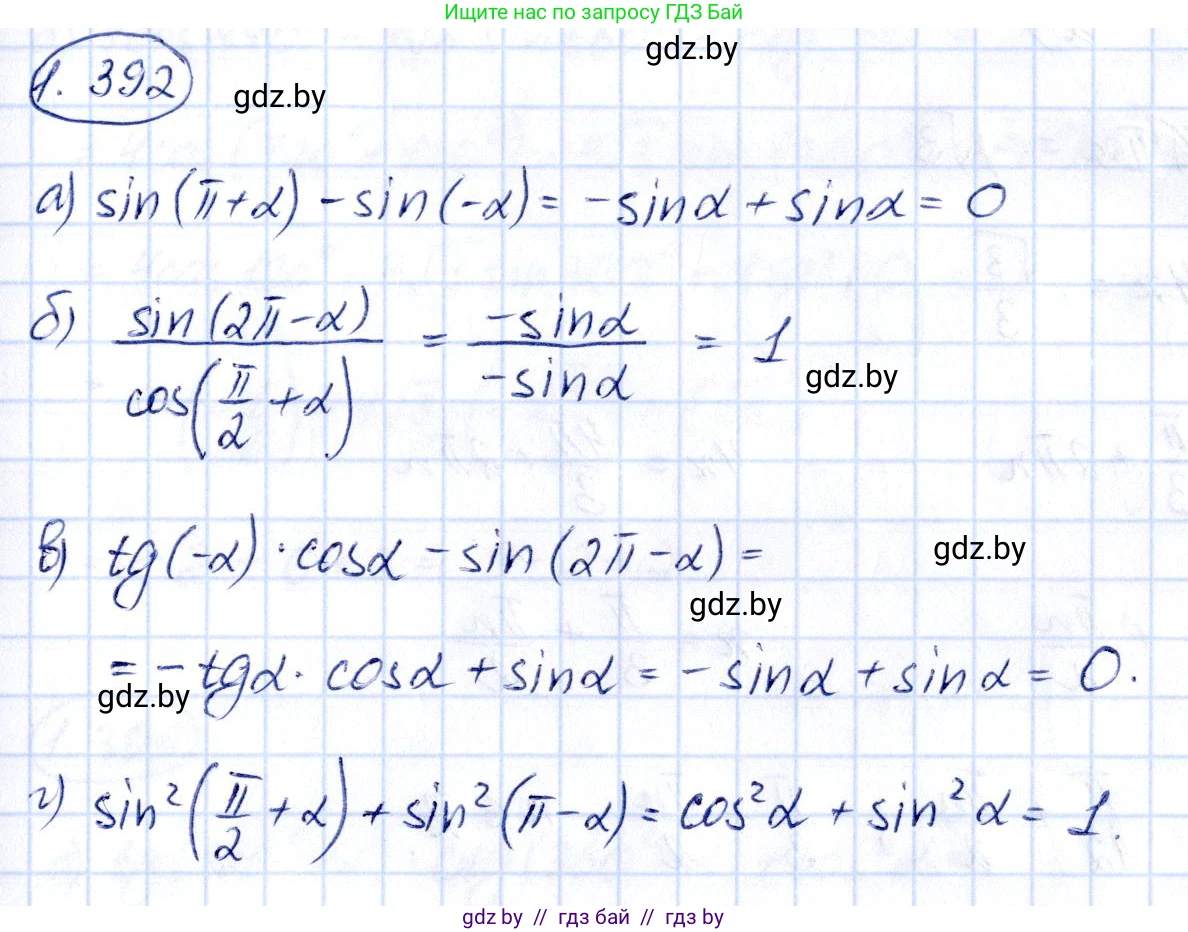 Ищите нас по запросу ГДЗ Бай
gdz.by
1. 392
gdz.by
а) sin(π+α) - sin(-α) = -sinα + sinα = 0
б) sin(2π-α) / cos(π/2 + α) = -sinα / -sinα = 1
gdz.by
в) tg(-α) · cosα - sin(2π-α) =
gdz.by
gdz.by
= - tgα · cosα + sinα = - sinα + sinα = 0.
gdz.by
г) sin²(π/2 + α) + sin²(π-α) = cos²α + sin²α = 1.
gdz.by // гдз бай // гдз by